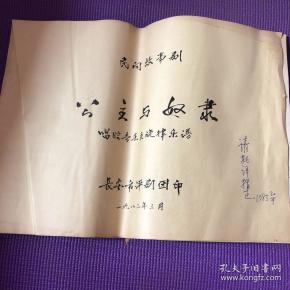 民间故事剧
公主与奴隶
唱腔音乐主旋律乐谱
长安县评剧团印
一九八二年三月
请批评指正
孔夫子旧书网